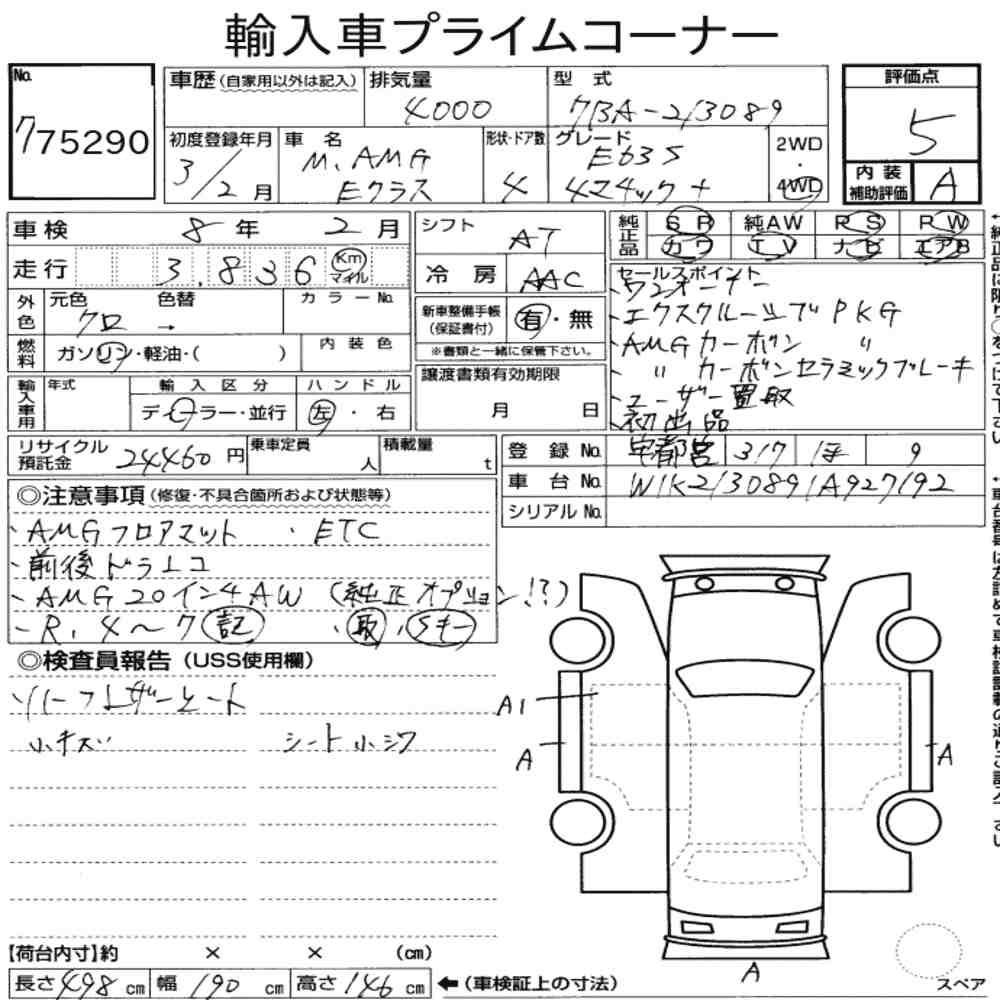 輸入車プライムコーナー
No. 775290
車歴 (自家用以外は記入)
排気量 4000
型式 7BA-213089
評価点 5
初度登録年月 3/2月
車名 M.AMG Eクラス
形状・ドア数 4
グレード E63S 4マチック+
2WD・4WD
内装補助評価 A
車検 8年 2月
走行 3,836 Km マイル
外色 元色 クロ 色替 → カラーNo.
燃料 ガソリン・軽油・( ) 内装色
輸入車用 年式 輸入区分 ディーラー・並行 ハンドル 左・右
シフト AT
冷房 AAC
新車整備手帳(保証書付) 有・無
※書類と一緒に保管下さい。
譲渡書類有効期限
月 日
純正品 SR 純AW RS PW
カワ TV ナビ エアB
セールスポイント
・ワンオーナー
・エクスクルーシブPKG
・AMGカーボン 〃
・〃 カーボンセラミックブレーキ
・ユーザー買取
・初出品
リサイクル預託金 24460円
乗車定員 人
積載量 t
登録No. 宇都宮 317 9
車台No. W1K2130891A927192
シリアルNo.
◎注意事項 (修復・不具合箇所および状態等)
・AMGフロアマット ・ETC
・前後ドラレコ
・AMG20インチAW (純正オプション!?)
・R.4〜7記 ・取、Sキー
◎検査員報告 (USS使用欄)
ハーフレザーシート
小キズ シート小シワ
A1
A
A
A
スペア
【荷台内寸】約 × × (cm)
長さ498cm 幅190cm 高さ146cm ←(車検証上の寸法)